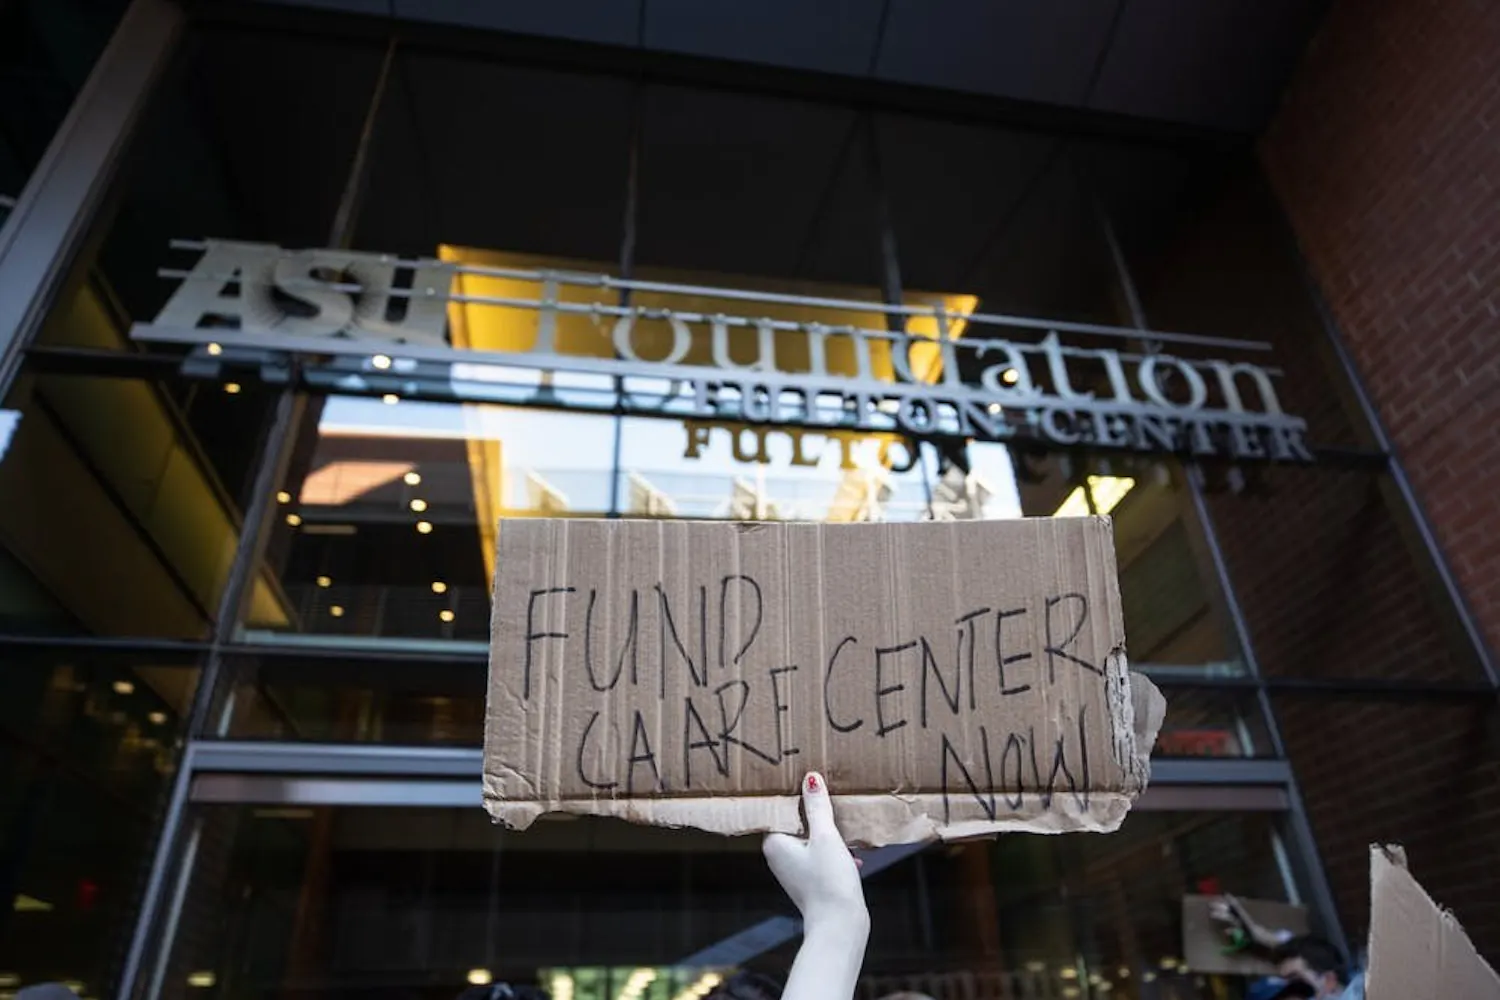 ASU Foundation
FULTON CENTER
FULTON
FUND
CAARE CENTER
NOW